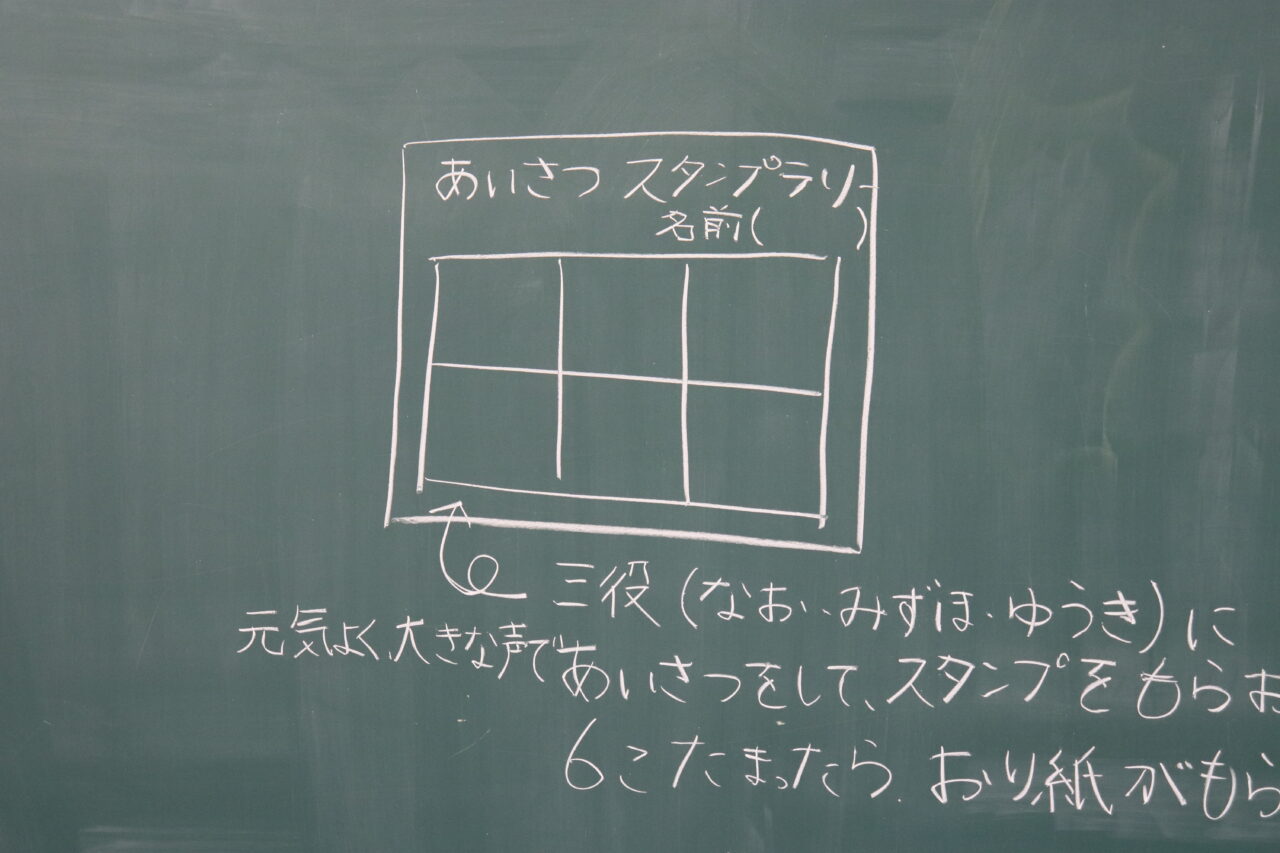 あいさつ スタンプラリー
名前(　　　)
三役(なお・みずほ・ゆうき)に
元気よく、大きな声であいさつをして、スタンプをもらお
6こたまったら、おり紙がもら